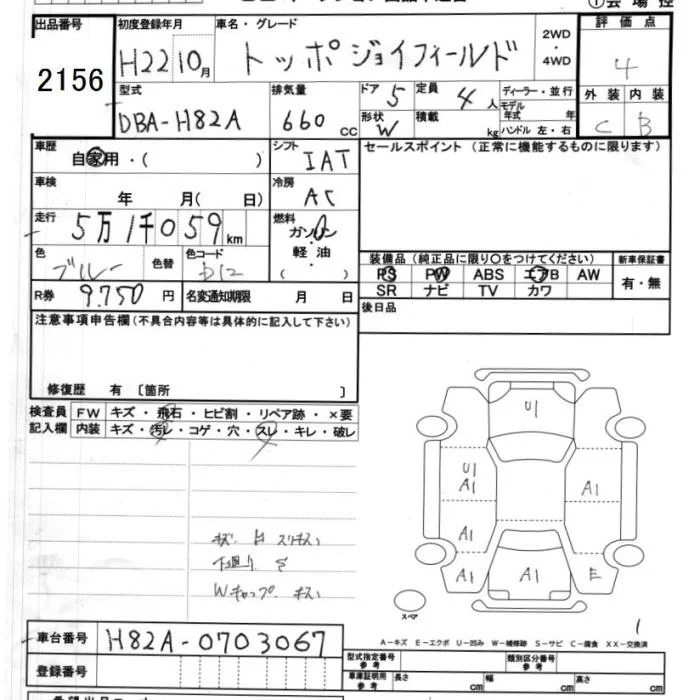 ①会場控
出品番号 初度登録年月 車名・グレード 評価点
2156 H22 10月 トッポジョイフィールド 2WD ・ 4WD 4
型式 排気量 ドア 定員 ディーラー・並行 外装 内装
DBA-H82A 660cc 5 4人 モデル年式 年 C B
形状 W 積載 kg ハンドル 左・右
車歴 シフト セールスポイント（正常に機能するものに限ります）
自家用・（ ） IAT
車検 冷房
年 月（ 日） AC
走行 燃料
5万1千059km ガソリン
色 色替 色コード 軽油
ブルー （ ）
装備品（純正品に限り○をつけてください） 新車保証書
PS PW ABS エアB AW 有・無
SR ナビ TV カワ
R券 9.750円 名変通知期限 月 日
後日品
注意事項申告欄（不具合内容等は具体的に記入して下さい）
修復歴 有 〔箇所 〕
検査員 FW キズ・飛石・ヒビ割・リペア跡・×要
記入欄 内装 キズ・汚レ・コゲ・穴・スレ・キレ・破レ
U1
U1
A1 A1
A1
A1 A1 E
下廻り
Wキャップ キズ
スペア
1
A－キズ E－エクボ U－凹み W－補修跡 S－サビ C－腐食 XX－交換済
車台番号 H82A-0703067
型式指定番号 参考 類別区分番号 参考
登録番号 車庫証明用 参考 長さ cm 幅 cm 高さ cm